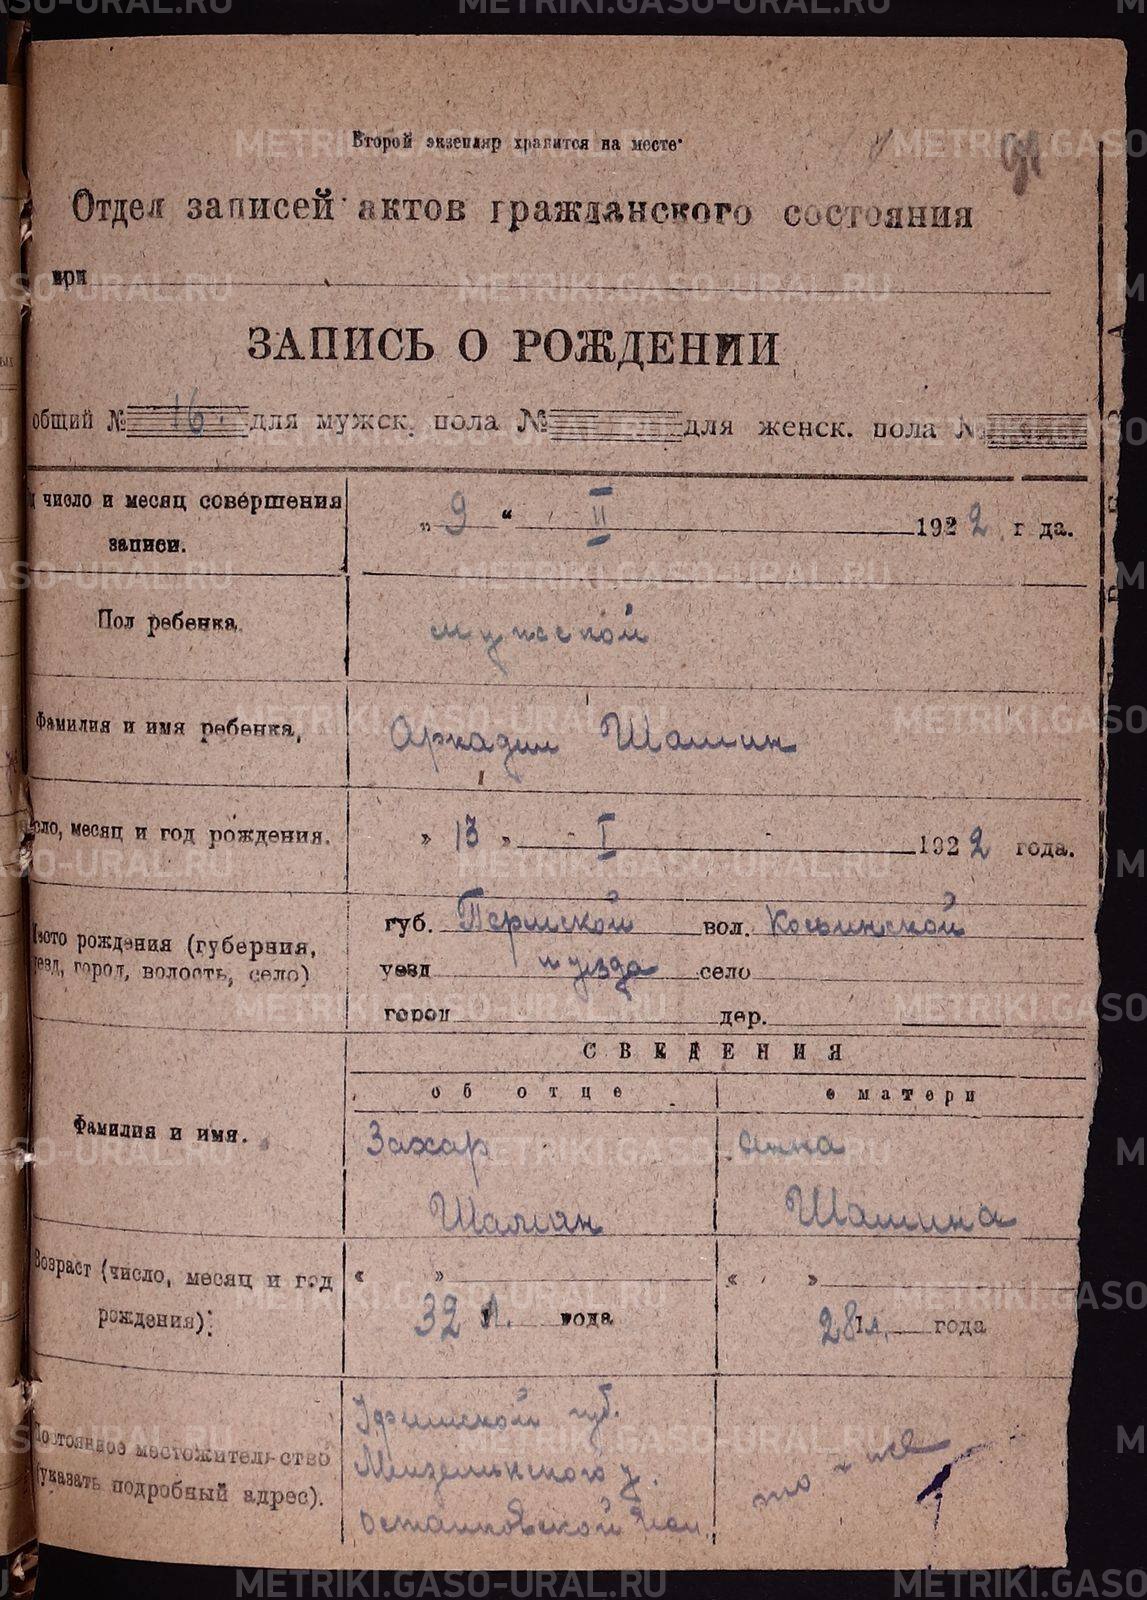 Второй экземпляр хранится на месте
91
Отдел записей актов гражданского состояния
при
ЗАПИСЬ О РОЖДЕНИИ
общий № 16. для мужск. пола № для женск. пола №
число и месяц совершения записи.
„ 9 “ II 1922 года.
Пол ребенка.
мужской
Фамилия и имя ребенка,
Аркадии Шашин
число, месяц и год рождения.
„ 13 „ I 1922 года.
Место рождения (губерния, уезд, город, волость, село)
губ. Пермской вол. Косьинской
уезд и уезда село
город дер.
СВЕДЕНИЯ
об отце о матери
Фамилия и имя.
Захар Анна
Шашин Шашина
Возраст (число, месяц и год рождения):
« » « »
32 л. года 28 л. года
Постоянное местожительство (указать подробный адрес).
Уфимской губ.
Мензелинского у.
то же
METRIKI.GASO-URAL.RU